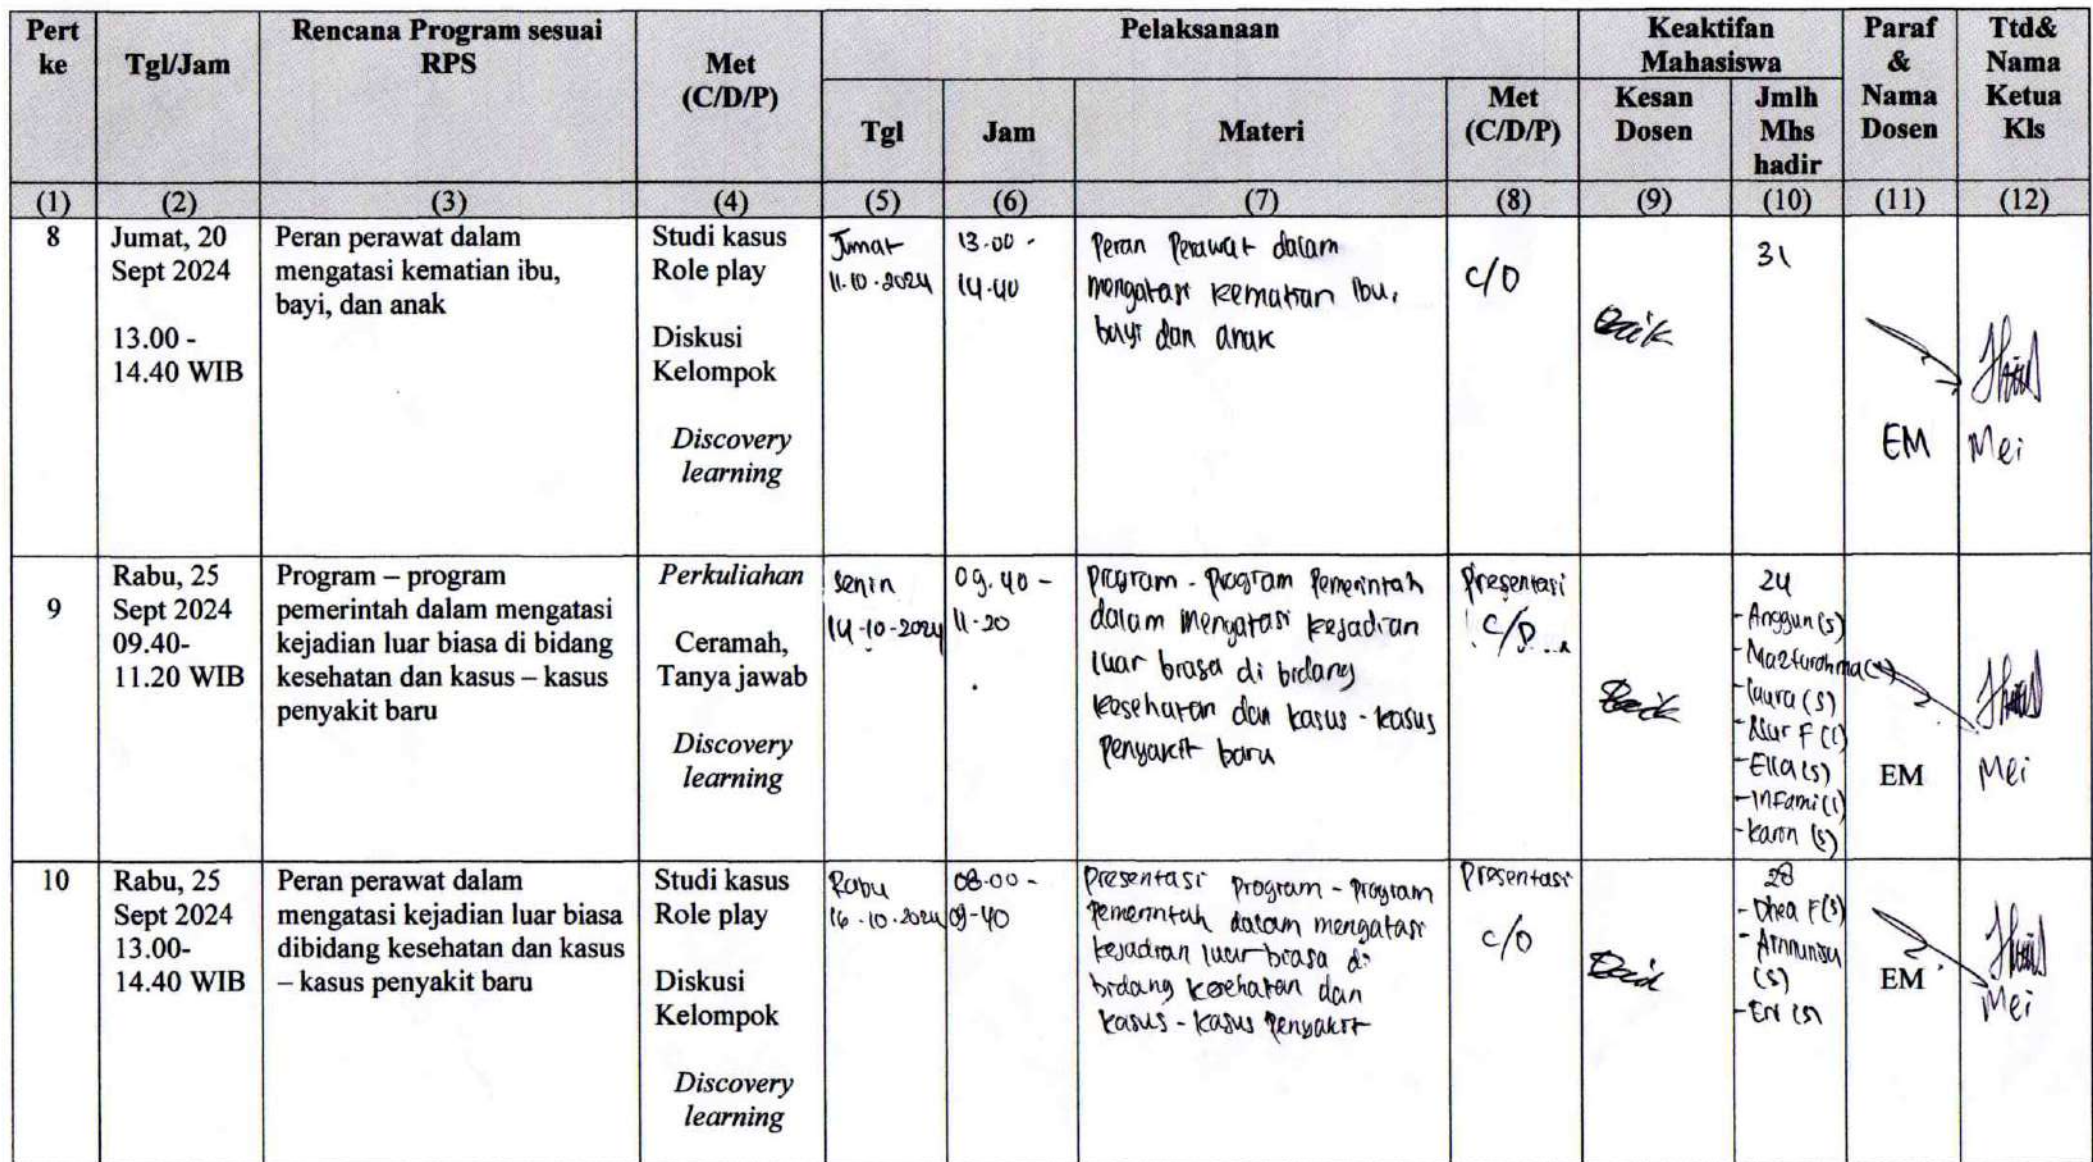 Pert ke
Tgl/Jam
Rencana Program sesuai RPS
Met (C/D/P)
Pelaksanaan
Keaktifan Mahasiswa
Paraf & Nama Dosen
Ttd& Nama Ketua Kls
Tgl
Jam
Materi
Met (C/D/P)
Kesan Dosen
Jmlh Mhs hadir
(1) (2) (3) (4) (5) (6) (7) (8) (9) (10) (11) (12)
8
Jumat, 20
Sept 2024
13.00 -
14.40 WIB
Peran perawat dalam
mengatasi kematian ibu,
bayi, dan anak
Studi kasus
Role play
Diskusi
Kelompok
Discovery
learning
Jumat
11.10.2024
13.00 -
14.40
Peran Perawat dalam
mengatasi kematian ibu,
bayi dan anak
C/D
Baik
31
EM
Mei
9
Rabu, 25
Sept 2024
09.40-
11.20 WIB
Program – program
pemerintah dalam mengatasi
kejadian luar biasa di bidang
kesehatan dan kasus – kasus
penyakit baru
Perkuliahan
Ceramah,
Tanya jawab
Discovery
learning
Senin
14-10-2024
09.40 -
11-20
Program - Program Pemerintah
dalam mengatasi kejadian
luar biasa di bidang
kesehatan dan kasus - kasus
Penyakit baru
Presentasi
C/D
Baik
24
- Anggun (s)
- Laura (s)
- Nur F (i)
- Ella (s)
- Infami (i)
- Karon (s)
EM
Mei
10
Rabu, 25
Sept 2024
13.00-
14.40 WIB
Peran perawat dalam
mengatasi kejadian luar biasa
dibidang kesehatan dan kasus
– kasus penyakit baru
Studi kasus
Role play
Diskusi
Kelompok
Discovery
learning
Rabu
16-10-2024
08-00 -
09-40
Presentasi Program - Program
Pemerintah dalam mengatasi
kejadian luar biasa di
bidang kesehatan dan
kasus - kasus Penyakit
Presentasi
C/D
Baik
28
- Dhea F(s)
(s)
EM
Mei